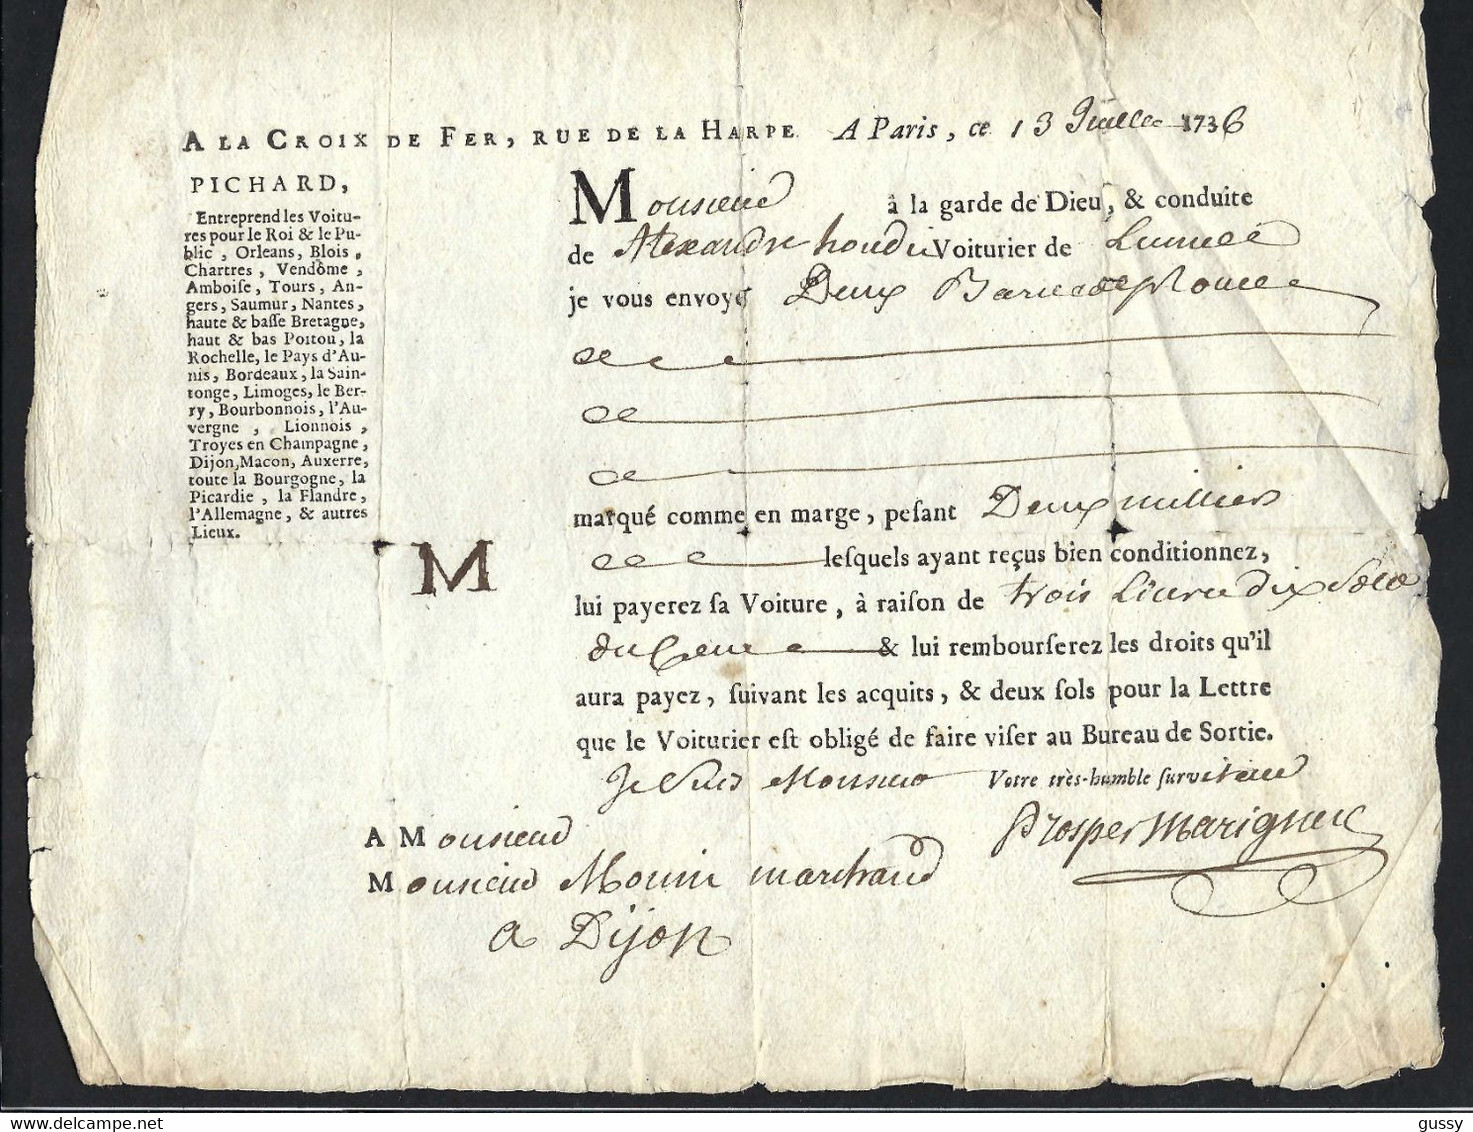 A LA CROIX DE FER, RUE DE LA HARPE. A Paris, ce 13 Juillet 1736
PICHARD,
Entreprend les Voitu-
res pour le Roi & le Pu-
blic, Orleans, Blois,
Chartres, Vendôme,
Amboise, Tours, An-
gers, Saumur, Nantes,
haute & basse Bretagne,
haut & bas Poitou, la
Rochelle, le Pays d'Au-
nis, Bordeaux, la Sain-
tonge, Limoges, le Ber-
ry, Bourbonnois, l'Au-
vergne, Lionnois,
Troyes en Champagne,
Dijon, Macon, Auxerre,
toute la Bourgogne, la
Picardie, la Flandre,
l'Allemagne, & autres
Lieux.
M
Monsieur à la garde de Dieu, & conduite
de Alexandre Voiturier de
je vous envoye Deux
marqué comme en marge, pesant Deux milliers
lesquels ayant reçus bien conditionnez,
lui payerez sa Voiture, à raison de trois Livres dix Sols
du Cent & lui rembourserez les droits qu'il
aura payez, suivant les acquits, & deux sols pour la Lettre
que le Voiturier est obligé de faire viser au Bureau de Sortie.
Je suis Monsieur Votre très-humble serviteur
Prosper
A Monsieur
Monsieur marchand
a Dijon
gussy